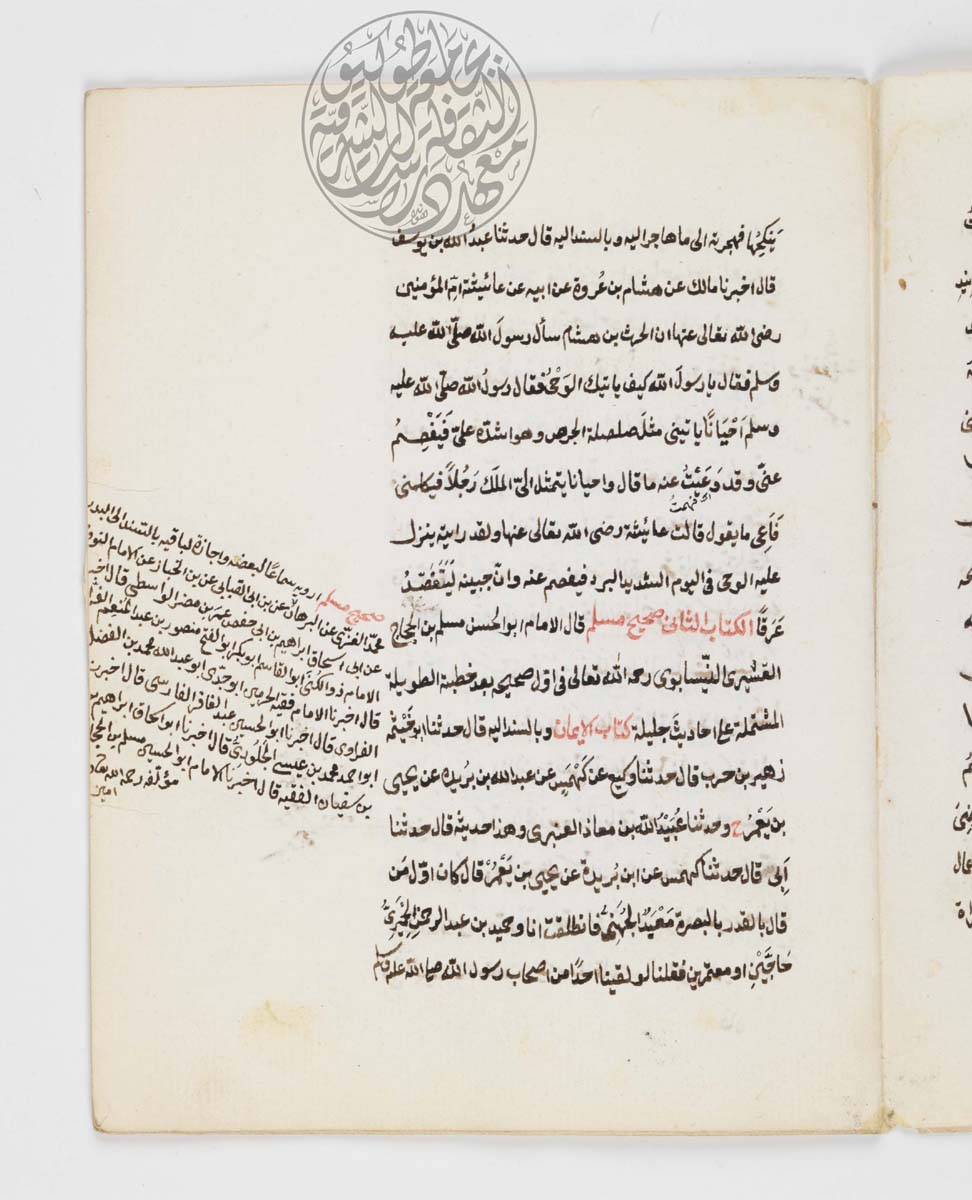 ينكحها فهجرته الى ما هاجر اليه وبالسند اليه قال حدثنا عبدُ الله بن يوسف
قال اخبرنا مالك عن هشام بن عُروة عن ابيه عن عائيشة امّ المؤمنين
رضى الله تعالى عنها ان الحرث بن هشام سأل رسولَ الله صلّى الله عليه
وسلم فقال يا رسولَ الله كيف ياتيك الوَحْىُ فقال رسولُ الله صلّى الله عليه
وسلم اَحْيَانًا ياتينى مثلَ صلصلة الجرس وهو اشدّه علىّ فَيَفْصِمُ
عنّى وقد وَعَيْتُ عنه ما قال واحيانا يتمثل الىّ الملَك رَجُلاً فيكلمنى
اى فهمتُ
فَاَعِى ما يقول قالت عائيشة رضى الله تعالى عنها ولقد رايته ينزل
عليه الوحى فى اليوم الشديد البرد فيفصم عنه وانّ جبينه لَيَتَفَصّدُ
عَرَقًا الكتاب الثانى صحيح مسلم قال الامام ابو الحسن مسلم بن الحجاج
القشيرى النّيسابورى رحمه الله تعالى فى اوّل صحيحه بعد خطبته الطويلة
المشتملة على احاديثَ جليلة كتاب الايمان وبالسند اليه قال حدثنا ابو خَيْثمه
زهير بن حرب قال حدثنا وكيع عن كَهْمَسٍ عن عبد الله بن بُرَيده عن يحيى
بن يَعْمُرَ ح وحدثنا عُبَيْدُ الله بن معاذ العنبرى وهذا حديثه قال حدثنا
اَبِى قال حدثنا كهمس عن ابن بُريدة عن يحيى بن يَعْمُرَ قال كان اوّل مَن
قال بالقدر بالبصرة مَعْبَدٌ الجُهَنِىُّ فانطلقت انا وحميد بن عبد الرحمن الحِمْيَرِىُّ
حَاجَّيْنِ او معتمرين فقلنا لو لقينا احدًا من اصحاب رسول الله صلى الله عليه وسلم
صحيح مسلم ارويه سماعًا لبعضه واجازة لباقيه بالسند الى البدر
محمّد الغزى عن البرهان عن بن ابى القبابى عن بن الخباز عن الامام النووى
عن ابى اسحاق ابراهيم بن ابى حفص عمر بن مضر الواسطى قال اخبرنا
الامام ذو الكنى ابو القاسم ابو بكر ابو الفتح منصور بن عبد المنعم الفراوى
قال اخبرنا الامام فقيه الحرمين ابو جدّى ابو عبد الله محمد بن الفضل
الفراوى قال اخبرنا ابو الحسين عبد الغافر الفارسى قال اخبرنا
ابو احمد محمد بن عيسى الجلودى قال اخبرنا ابو اسحاق ابراهيم بن
بن سفيان الفقيه قال اخبرنا الامام ابو الحسين مسلم بن الحجاج
مؤلفه رحمه الله تعالى
امين